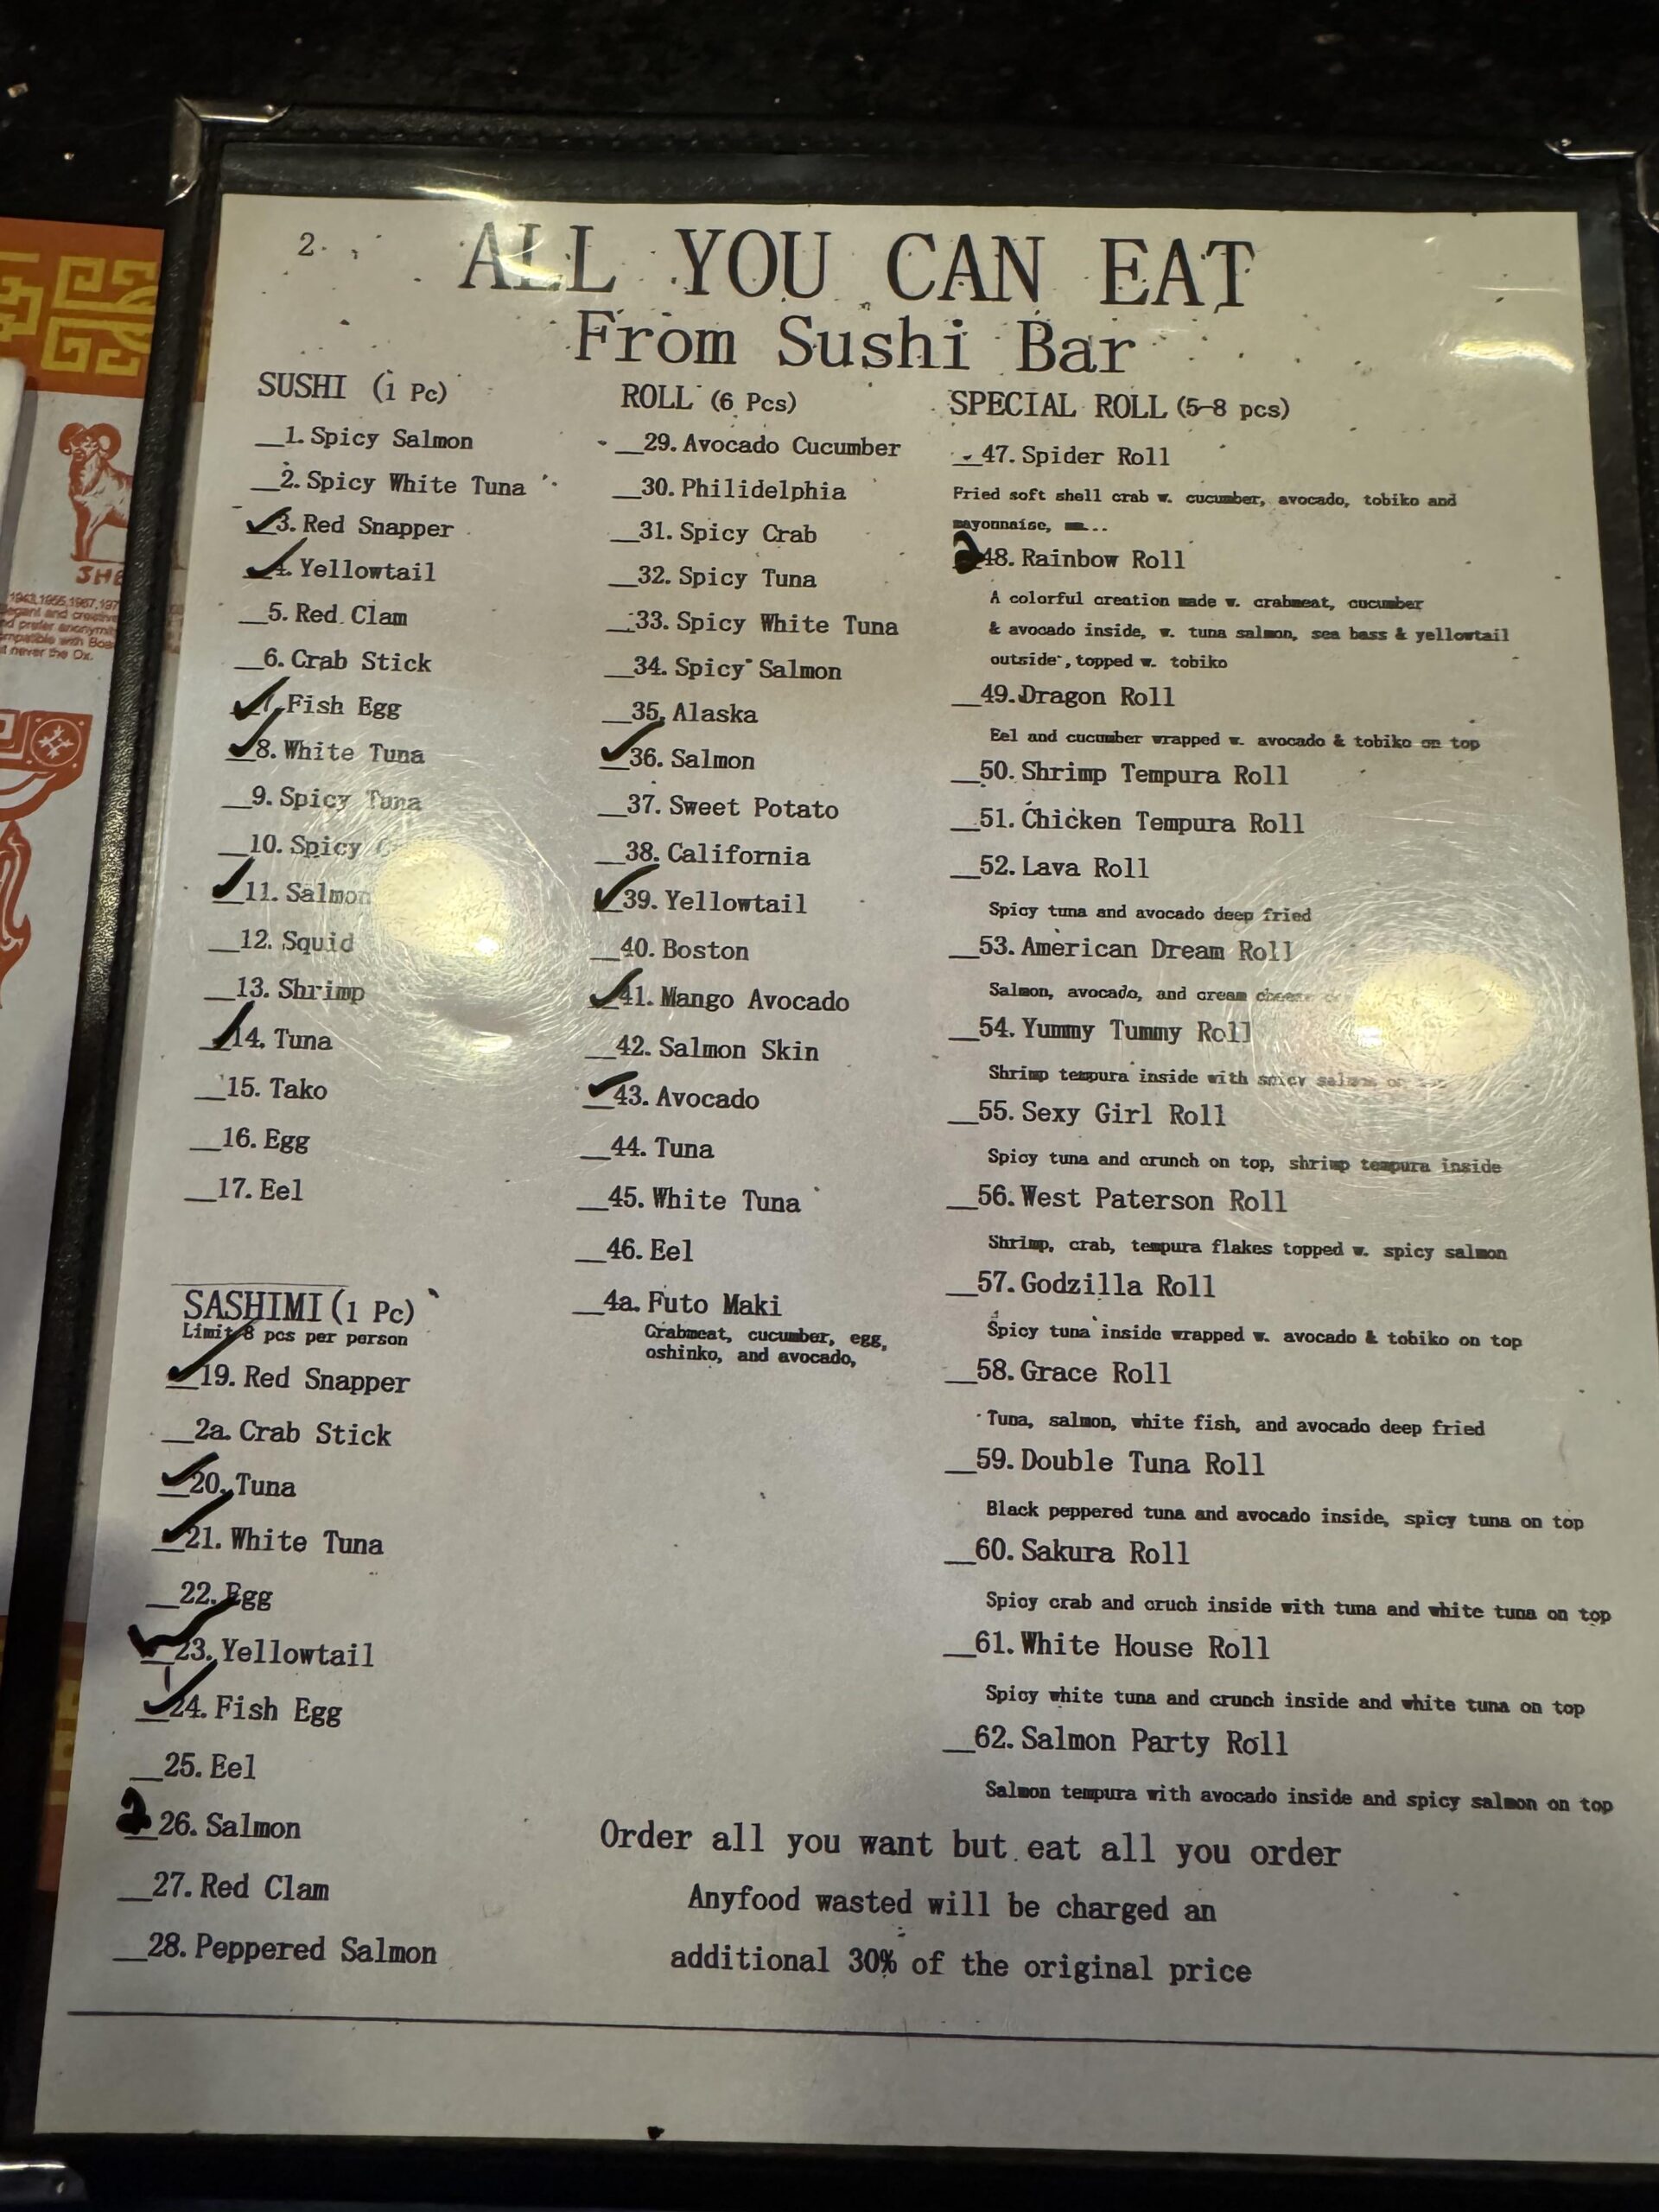 2.
ALL YOU CAN EAT
From Sushi Bar
SUSHI (1 Pc)
__1. Spicy Salmon
__2. Spicy White Tuna
✓3. Red Snapper
✓4. Yellowtail
__5. Red Clam
__6. Crab Stick
✓7. Fish Egg
✓8. White Tuna
__9. Spicy Tuna
__10. Spicy
✓11. Salmon
__12. Squid
__13. Shrimp
✓14. Tuna
__15. Tako
__16. Egg
__17. Eel
SASHIMI (1 Pc)
Limit 8 pcs per person
✓19. Red Snapper
__2a. Crab Stick
✓20. Tuna
✓21. White Tuna
__22. Egg
✓23. Yellowtail
✓24. Fish Egg
__25. Eel
2 26. Salmon
__27. Red Clam
__28. Peppered Salmon
ROLL (6 Pcs)
__29. Avocado Cucumber
__30. Philidelphia
__31. Spicy Crab
__32. Spicy Tuna
__33. Spicy White Tuna
__34. Spicy Salmon
__35. Alaska
✓36. Salmon
__37. Sweet Potato
__38. California
✓39. Yellowtail
__40. Boston
✓41. Mango Avocado
__42. Salmon Skin
✓43. Avocado
__44. Tuna
__45. White Tuna
__46. Eel
__4a. Futo Maki
Crabmeat, cucumber, egg,
oshinko, and avocado,
SPECIAL ROLL (5-8 pcs)
__47. Spider Roll
Fried soft shell crab w. cucumber, avocado, tobiko and
mayonnaise, ...
2 48. Rainbow Roll
A colorful creation made w. crabmeat, cucumber
& avocado inside, w. tuna salmon, sea bass & yellowtail
outside, topped w. tobiko
__49. Dragon Roll
Eel and cucumber wrapped w. avocado & tobiko on top
__50. Shrimp Tempura Roll
__51. Chicken Tempura Roll
__52. Lava Roll
Spicy tuna and avocado deep fried
__53. American Dream Roll
Salmon, avocado, and cream cheese
__54. Yummy Tummy Roll
Shrimp tempura inside with spicy salmon on
__55. Sexy Girl Roll
Spicy tuna and crunch on top, shrimp tempura inside
__56. West Paterson Roll
Shrimp, crab, tempura flakes topped w. spicy salmon
__57. Godzilla Roll
Spicy tuna inside wrapped w. avocado & tobiko on top
__58. Grace Roll
Tuna, salmon, white fish, and avocado deep fried
__59. Double Tuna Roll
Black peppered tuna and avocado inside, spicy tuna on top
__60. Sakura Roll
Spicy crab and cruch inside with tuna and white tuna on top
__61. White House Roll
Spicy white tuna and crunch inside and white tuna on top
__62. Salmon Party Roll
Salmon tempura with avocado inside and spicy salmon on top
Order all you want but eat all you order
Anyfood wasted will be charged an
additional 30% of the original price
SHE
1943,1955,1967,197
egant and creative
d prefer anonymit
mpatible with Boa
t never the Ox.